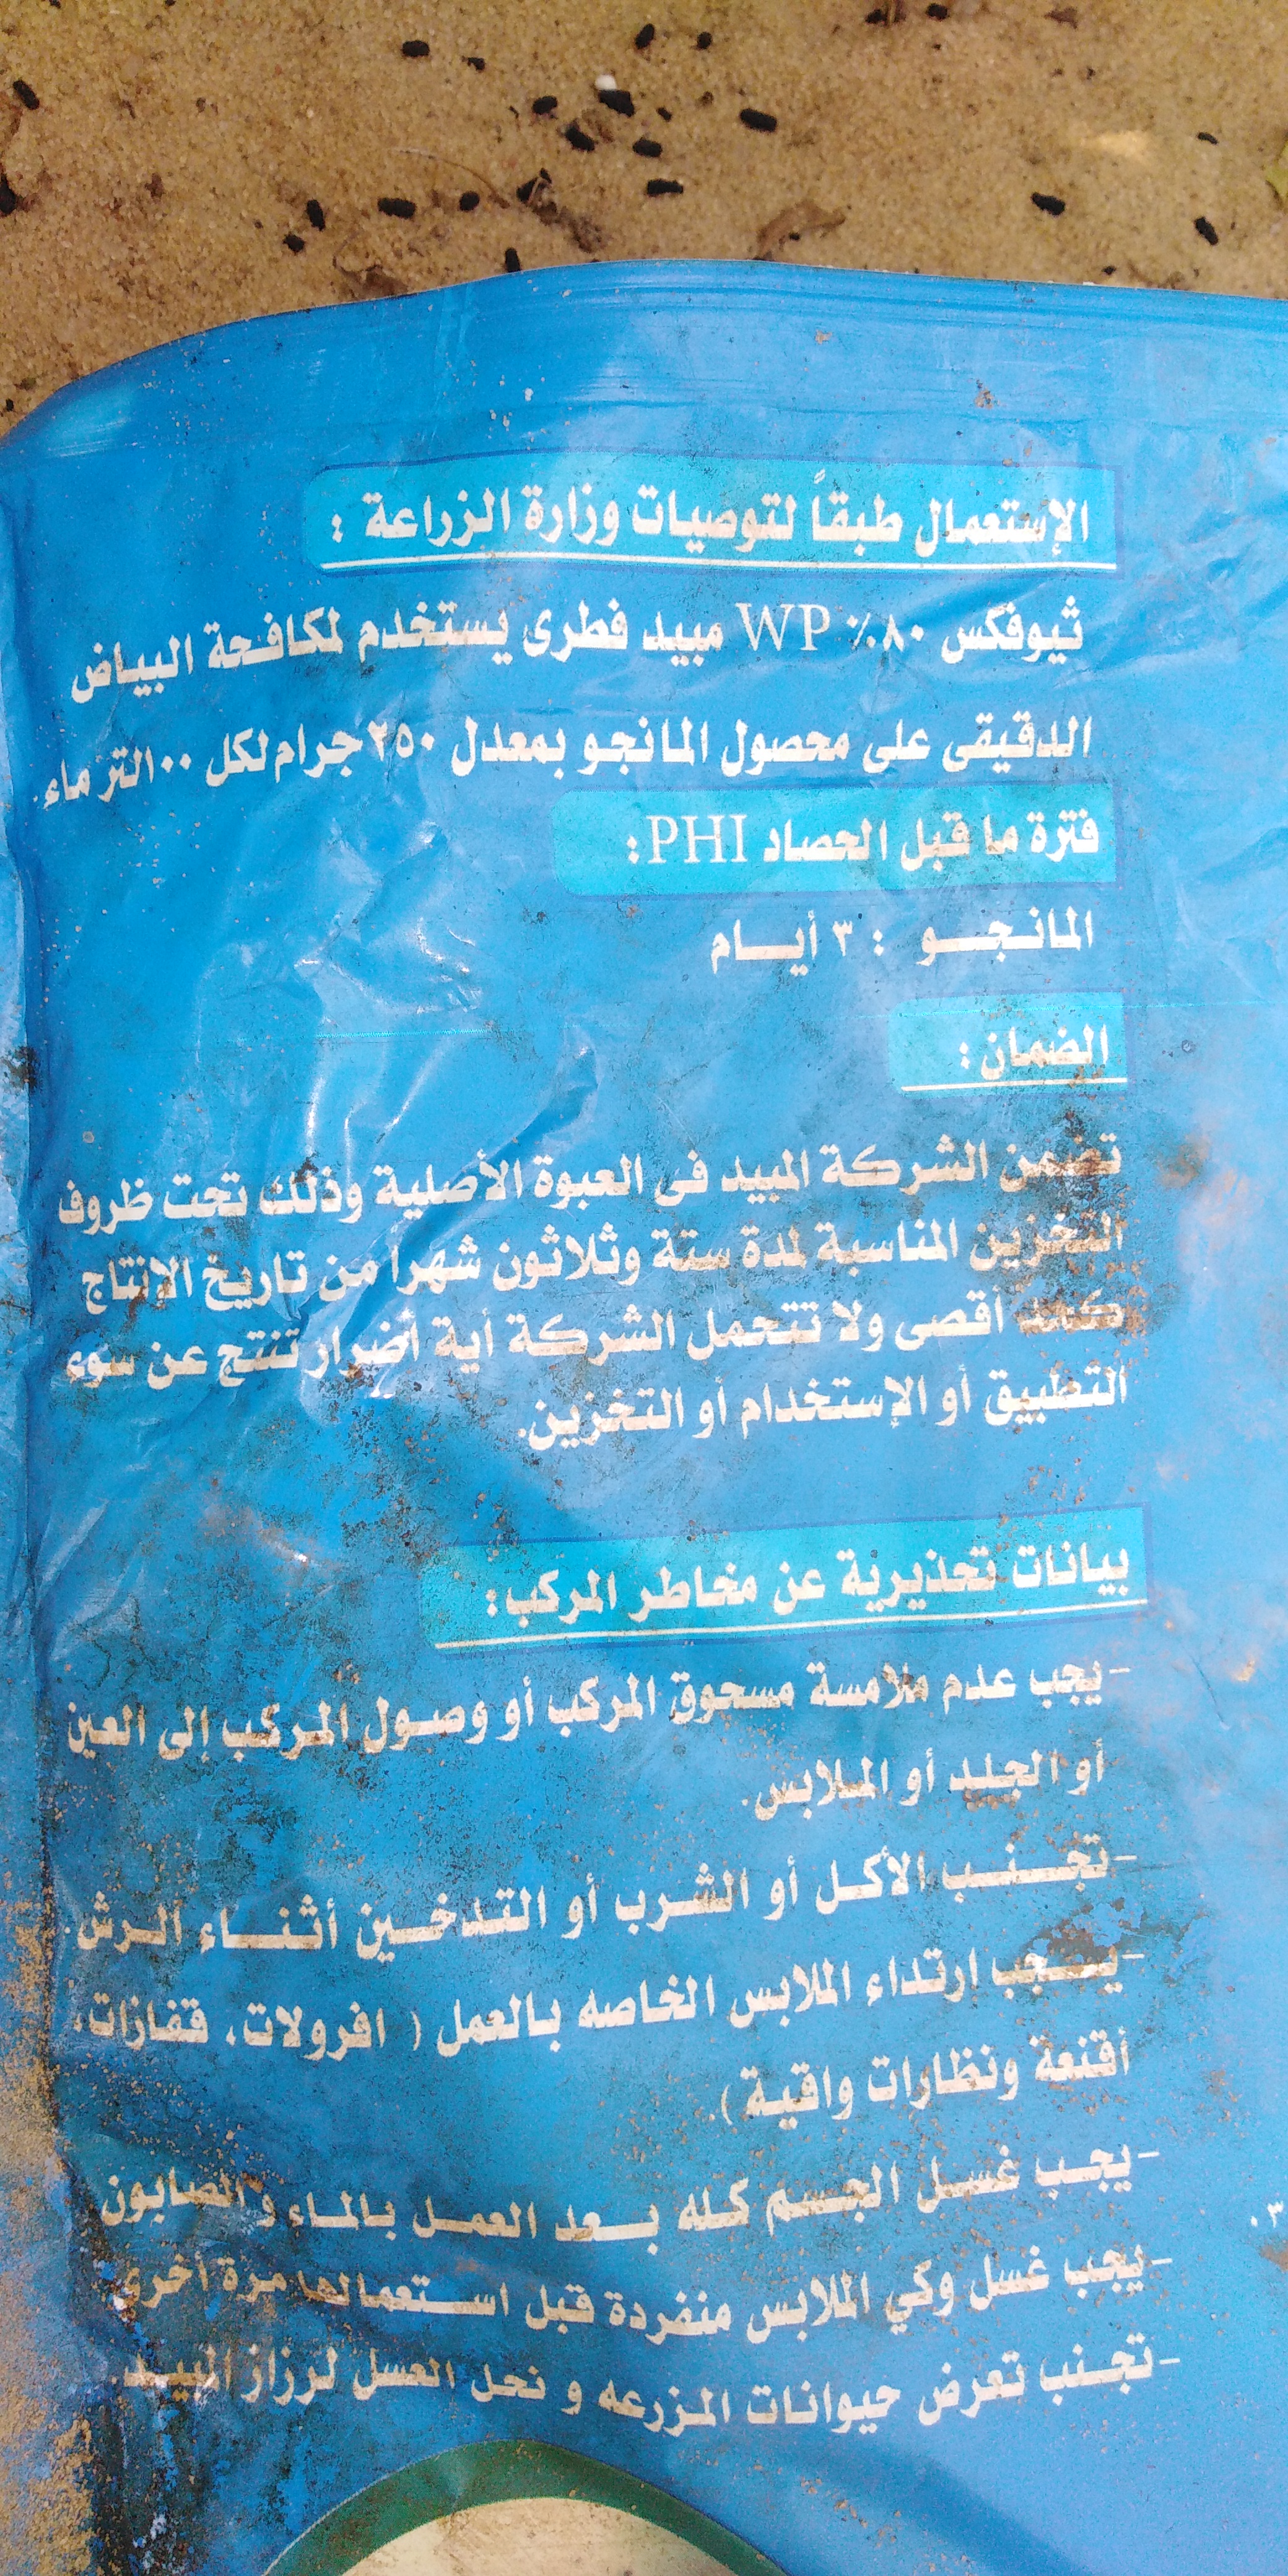 الإستعمال طبقاً لتوصيات وزارة الزراعة :
ثيوفكس ٨٠٪ WP مبيد فطرى يستخدم لمكافحة البياض
الدقيقى على محصول المانجو بمعدل ٢٥٠ جرام لكل ١٠٠لتر ماء.
فترة ما قبل الحصاد PHI :
المانجـــو : ٣ أيـــام
الضمان :
تضمن الشركة المبيد فى العبوة الأصلية وذلك تحت ظروف
التخزين المناسبة لمدة ستة وثلاثون شهراً من تاريخ الإنتاج
كحد أقصى ولا تتحمل الشركة أية أضرار تنتج عن سوء
التطبيق أو الإستخدام أو التخزين.
بيانات تحذيرية عن مخاطر المركب :
- يجب عدم ملامسة مسحوق المركب أو وصول المركب إلى العين
أو الجلد أو الملابس.
- تجنب الأكل أو الشرب أو التدخين أثناء الرش.
- يجب ارتداء الملابس الخاصه بالعمل ( افرولات، قفازات،
أقنعة ونظارات واقية ).
- يجب غسل الجسم كله بعد العمل بالماء و الصابون
- يجب غسل وكي الملابس منفردة قبل استعمالها مرة أخرى
- تجنب تعرض حيوانات المزرعه و نحل العسل لرزاز المبيد.
٣.